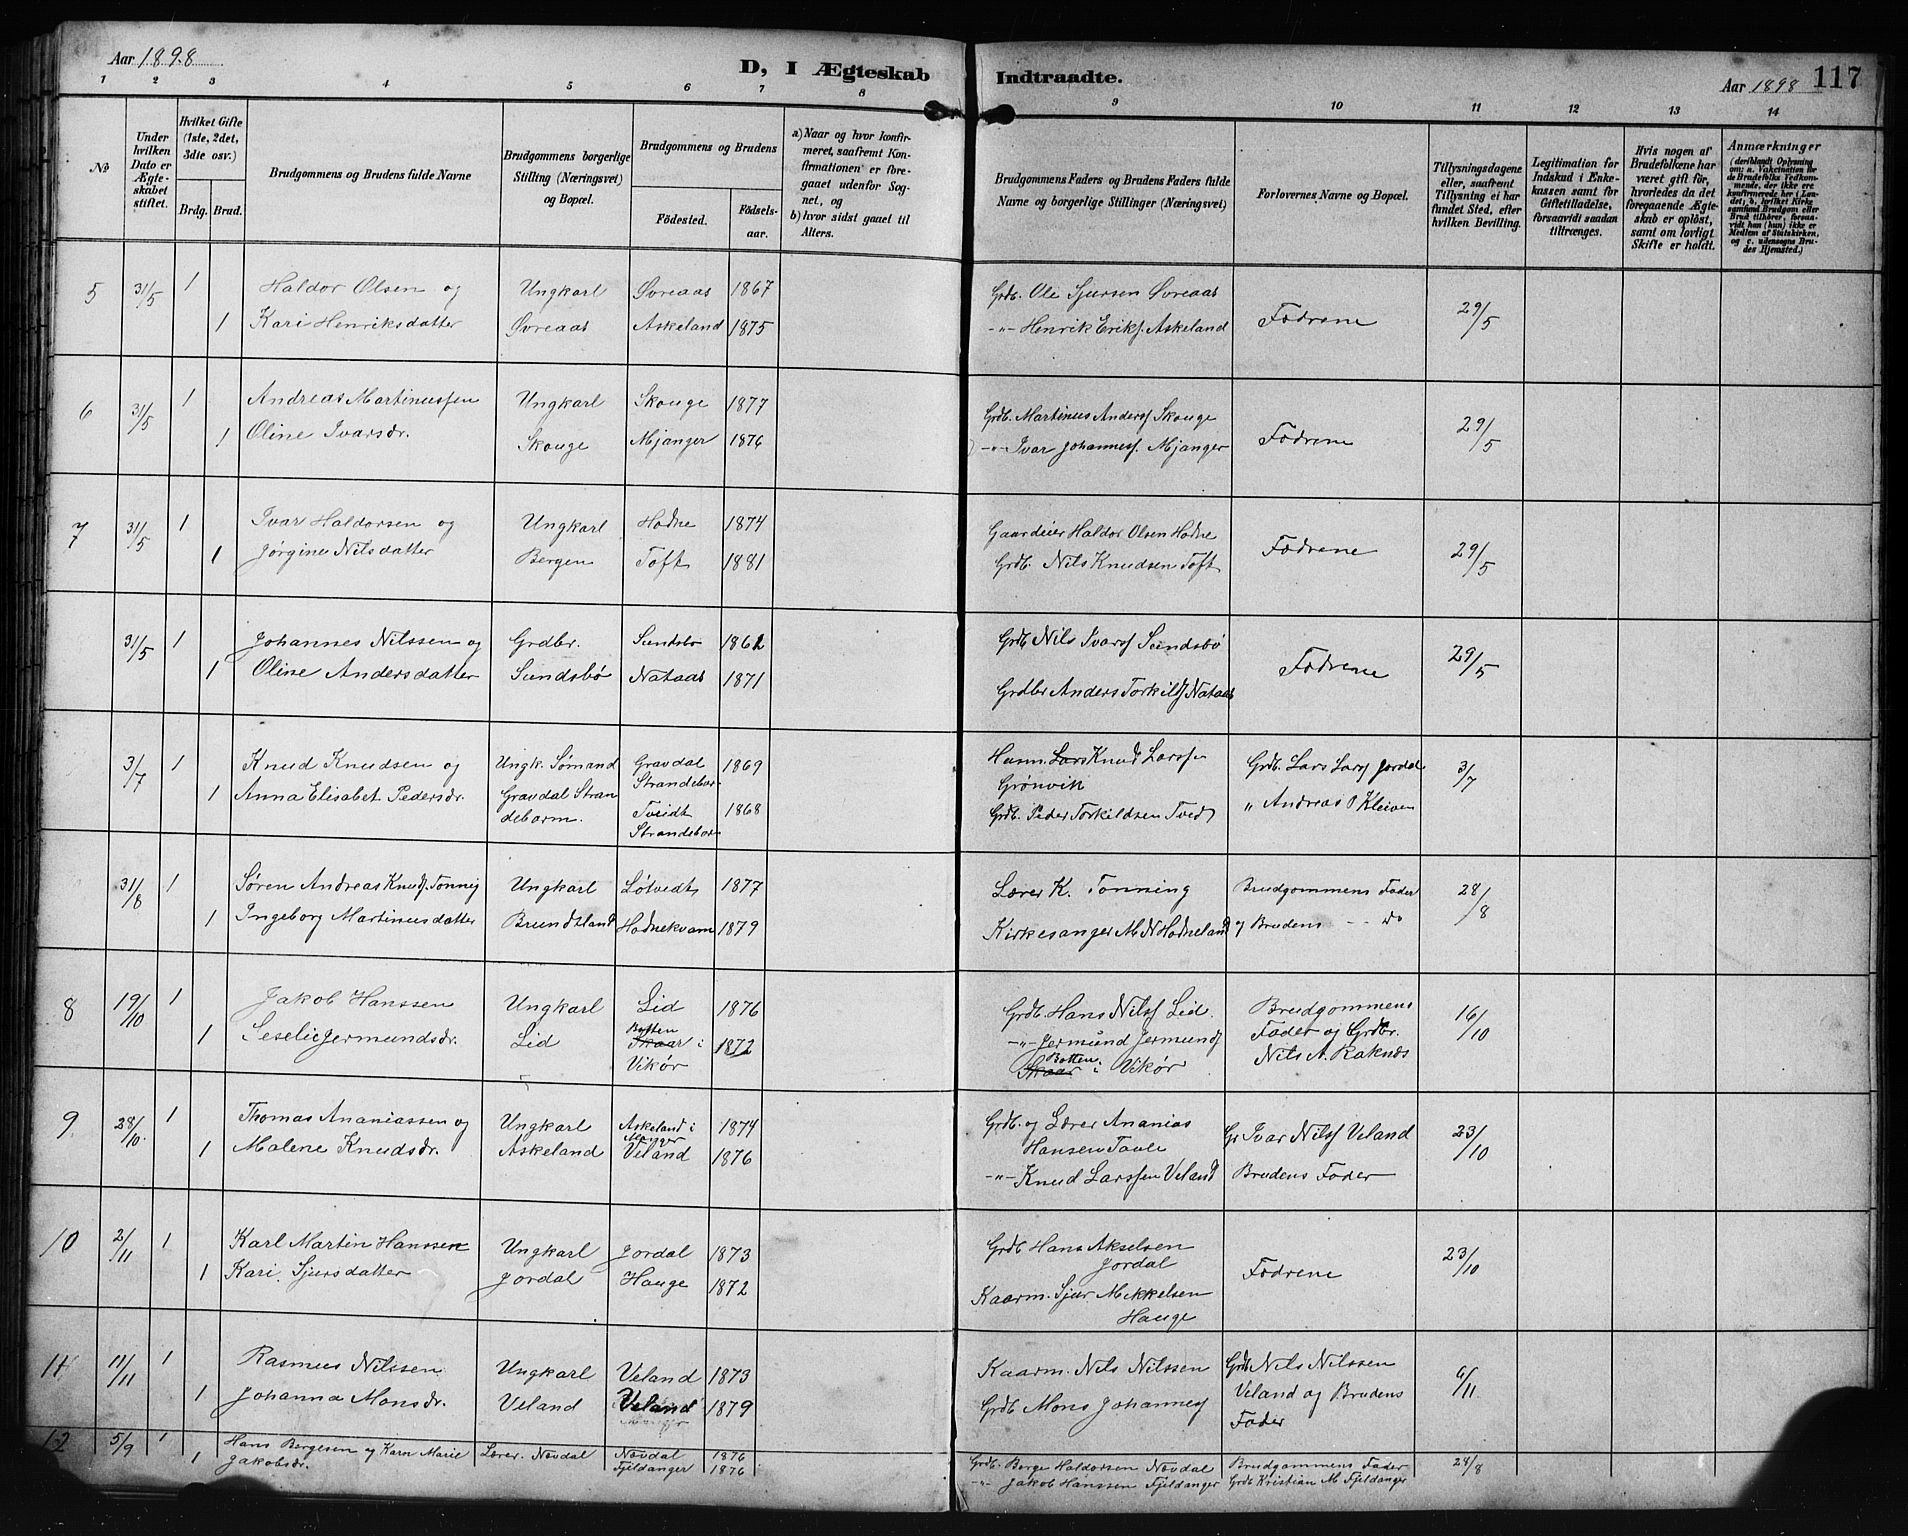 Aar 1898
D, I Ægteskab Indtraadte.
Aar 1898 117
1 2 3 4 5 6 7 8 9 10 11 12 13 14
№
Under hvilken Dato er Ægteskabet stiftet.
Hvilket Gifte (1ste, 2det, 3die osv.)
Brdg. Brud.
Brudgommens og Brudens fulde Navne
Brudgommens borgerlige Stilling (Næringsvei) og Bopæl.
Brudgommens og Brudens
Födested. Födsels-aar.
a) Naar og hvor konfirmeret, saafremt Konfirmationen er foregaaet udenfor Sognet, og
b) hvor sidst gaaet til Alters.
Brudgommens Faders og Brudens Faders fulde Navne og borgerlige Stillinger (Næringsvei)
Forlovernes Navne og Bopæl.
Tillysningsdagene eller, saafremt Tillysning ei har fundet Sted, efter hvilken Bevilling.
Legitimation for Indskud i Enkekassen samt for Giftetilladelse, forsaavidt saadan tiltrænges.
Hvis nogen af Brudefolkene har været gift før, hvorledes da det foregaaende Ægteskab er opløst, samt om lovligt Skifte er holdt.
Anmærkninger
(deriblandt Oplysning om: a. Vakcination for de Brudefolks Vedkommende, der ikke ere konfirmerede her i Landet; b. hvilket Kirkesamfund Brudgom eller Brud tilhører, forsaavidt han (hun) ikke er Medlem af Statskirken, og c. udensogns Brudes Hjemsted.)
5 31/5 1 Haldor Olsen og Ungkarl Øvreaas 1867 Grdb. Ole Sjursen Øvreaas Fædrene 29/5
1 Kari Henriksdatter Øvreaas Askeland 1875 -"- Henrik Eriks. Askeland
6 31/5 1 Andreas Martinussen Ungkarl Skouge 1877 Grdb. Martinus Anders. Skouge Fædrene 29/5
1 Oline Ivarsdr. Skouge Mjanger 1876 -"- Ivar Johanness. Mjanger
7 31/5 1 Ivar Haldorsen og Ungkarl Hodne 1874 Gaardeier Haldor Olsen Hodne Fædrene 29/5
1 Jørgine Nilsdatter Bergen Toft 1881 Grdb. Nils Knudsen Toft
31/5 1 Johannes Nilssen og Grdbr. Sundsbø Grdb. Nils Ivars. Sundsbø Fædrene 29/5
1 Oline Andersdatter Sundsbø Nataas 1871 Grdbr Anders Torkilds. Nataas
3/7 1 Knud Knudsen og Ungk. Sømand Gravdal 1869 Knud Larss. Grdb. Lars Lars. Jordal 3/7
Strandebar. Grønvik
1 Anna Elisabet Pedersdr. Gravdal Strandebarm. Tveidt 1868 " Andreas P Kleiven
Strandebar Grdb. Peder Torkildsen Tvedt
31/8 1 Søren Andreas Knuds. Tonnig Ungkarl Løtvedt 1877 Lærer K. Tonning Brudgommens Fader 28/8
1 Ingeborg Martinusdatter Brundtland Hodnekvam 1879 Kirkesanger M. N. Hodneland og Brudens -- do
8 19/10 1 Jakob Hanssen Ungkarl Lid 1876 Grdb. Hans Nils. Lid. Brudgommens 16/10
1 Seselie Jermundsdr. Lid Botten Skaar i Vikør 1872 -"- Jermund Jermunds. Fader og Grdbr.
Botten Skaar i Vikør Nils A. Raknes
9 28/10 1 Thomas Ananiassen og Ungkarl Askeland i Manger 1874 Grdb. og Lærer Ananias Gr Ivar Nils. Veland 23/10
Hansen Taule
1 Malene Knudsdr. Askeland Veland 1876 -"- Knud Larssen Veland Brudens Fader
10 2/11 1 Karl Martin Hanssen Ungkarl Jordal 1873 Grdb. Hans Akselsen Jordal Fædrene 23/10
1 Kari Sjursdatter Jordal Hauge 1872 Kaarm. Sjur Mikkelsen Hauge
11 11/11 1 Rasmus Nilssen Ungkarl Veland 1873 Kaarm. Nils Nilssen Grdb Nils Nilssen 6/11
1 Johanna Monsdr. Veland Veland 1879 Grdb. Mons Johanness. Veland og Brudens
Fader
12 5/9 1 Hans Børgesen og Karn Marie Lærer. Nøvdal Nøvdal 1876 Grdb. Børge Haldorsen Nøvdal Brudgommens Fader 28/8
1 Jakobsdr. Fjeldanger 1876 -"- Jakob Hanssen Fjeldanger Grdb Kristian M Fjeldanger